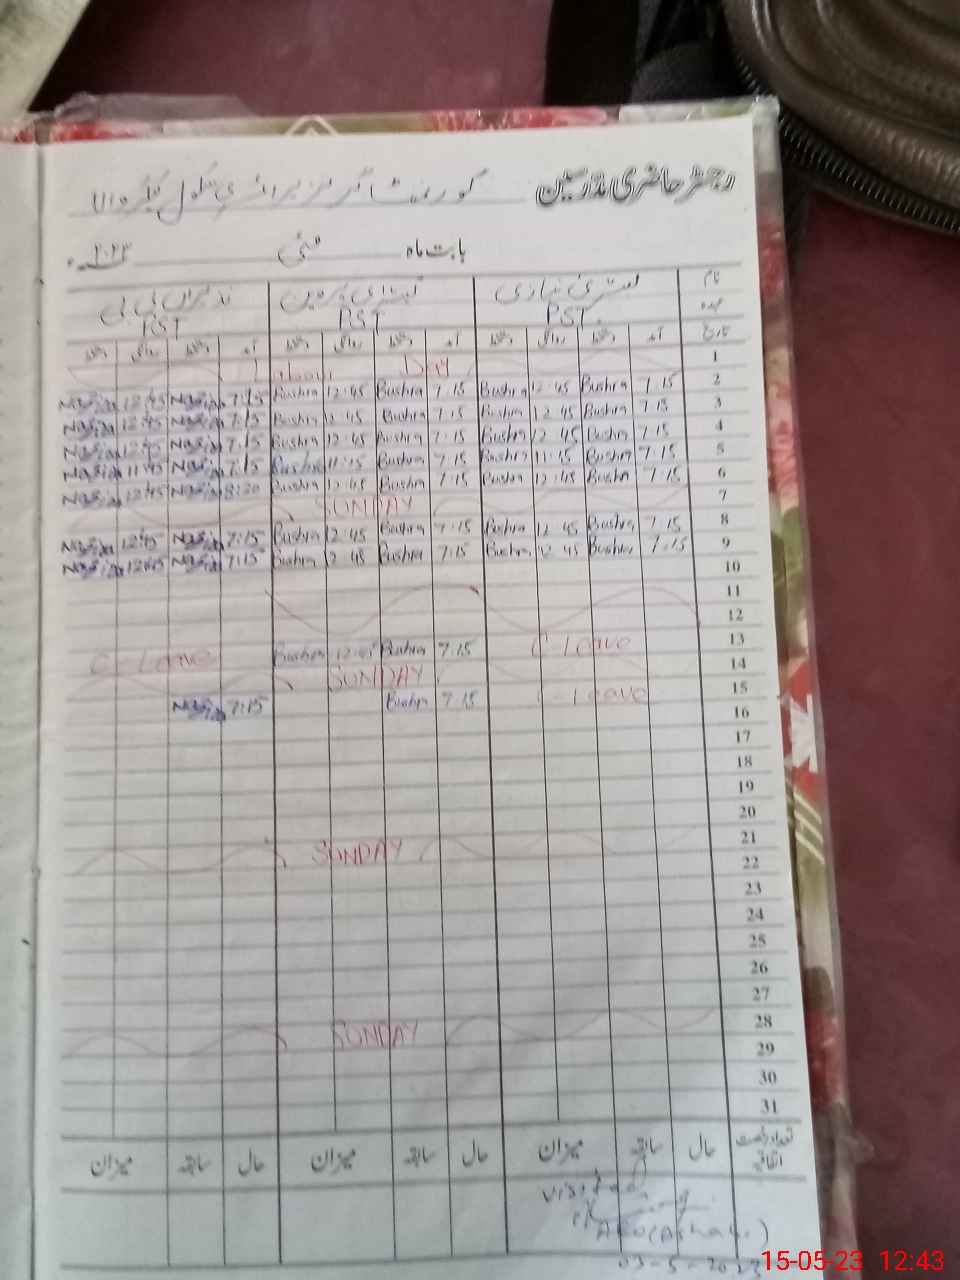 رجسٹر حاضری مدرسین گورنمنٹ گرلز پرائمری سکول
بابت ماہ مئی ۲۰۲۳ء
نام بشریٰ نیازی بشریٰ پروین بی بی
عہدہ PST PST PST
تاریخ آمد دستخط روانگی دستخط آمد دستخط روانگی دستخط آمد دستخط روانگی دستخط
1 Labour Day
2 7:15 Bushra 12:45 Bushra 7:15 Bushra 12:45 Bushra 7:15 Nazia 12:45 Nazia
3 7:15 Bushra 12:45 Bushra 7:15 Bushra 12:45 Bushra 7:15 Nazia 12:45 Nazia
4 7:15 Bushra 12:45 Bushra 7:15 Bushra 12:45 Bushra 7:15 Nazia 12:45 Nazia
5 7:15 Bushra 11:15 Bushra 7:15 Bushra 11:15 Bushra 7:15 Nazia 11:45 Nazia
6 7:15 Bushra 12:45 Bushra 7:15 Bushra 12:45 Bushra 8:20 Nazia 12:45 Nazia
7 SUNDAY
8 7:15 Bushra 12:45 Bushra 7:15 Bushra 12:45 Bushra 7:15 Nazia 12:45 Nazia
9 7:15 Bushra 12:45 Bushra 7:15 Bushra 12:45 Bushra 7:15 Nazia 12:45 Nazia
10
11
12
13 C-Leave 7:15 Bushra 12:45 Bushra C-Leave
14 SUNDAY
15 C-Leave 7:15 Bushra 7:15 Nazia
16
17
18
19
20
21 SUNDAY
22
23
24
25
26
27
28 SUNDAY
29
30
31
تعداد رخصت اتفاقیہ حال سابقہ میزان حال سابقہ میزان حال سابقہ میزان
Visited
AEO
03-5-2023
15-05-23 12:43